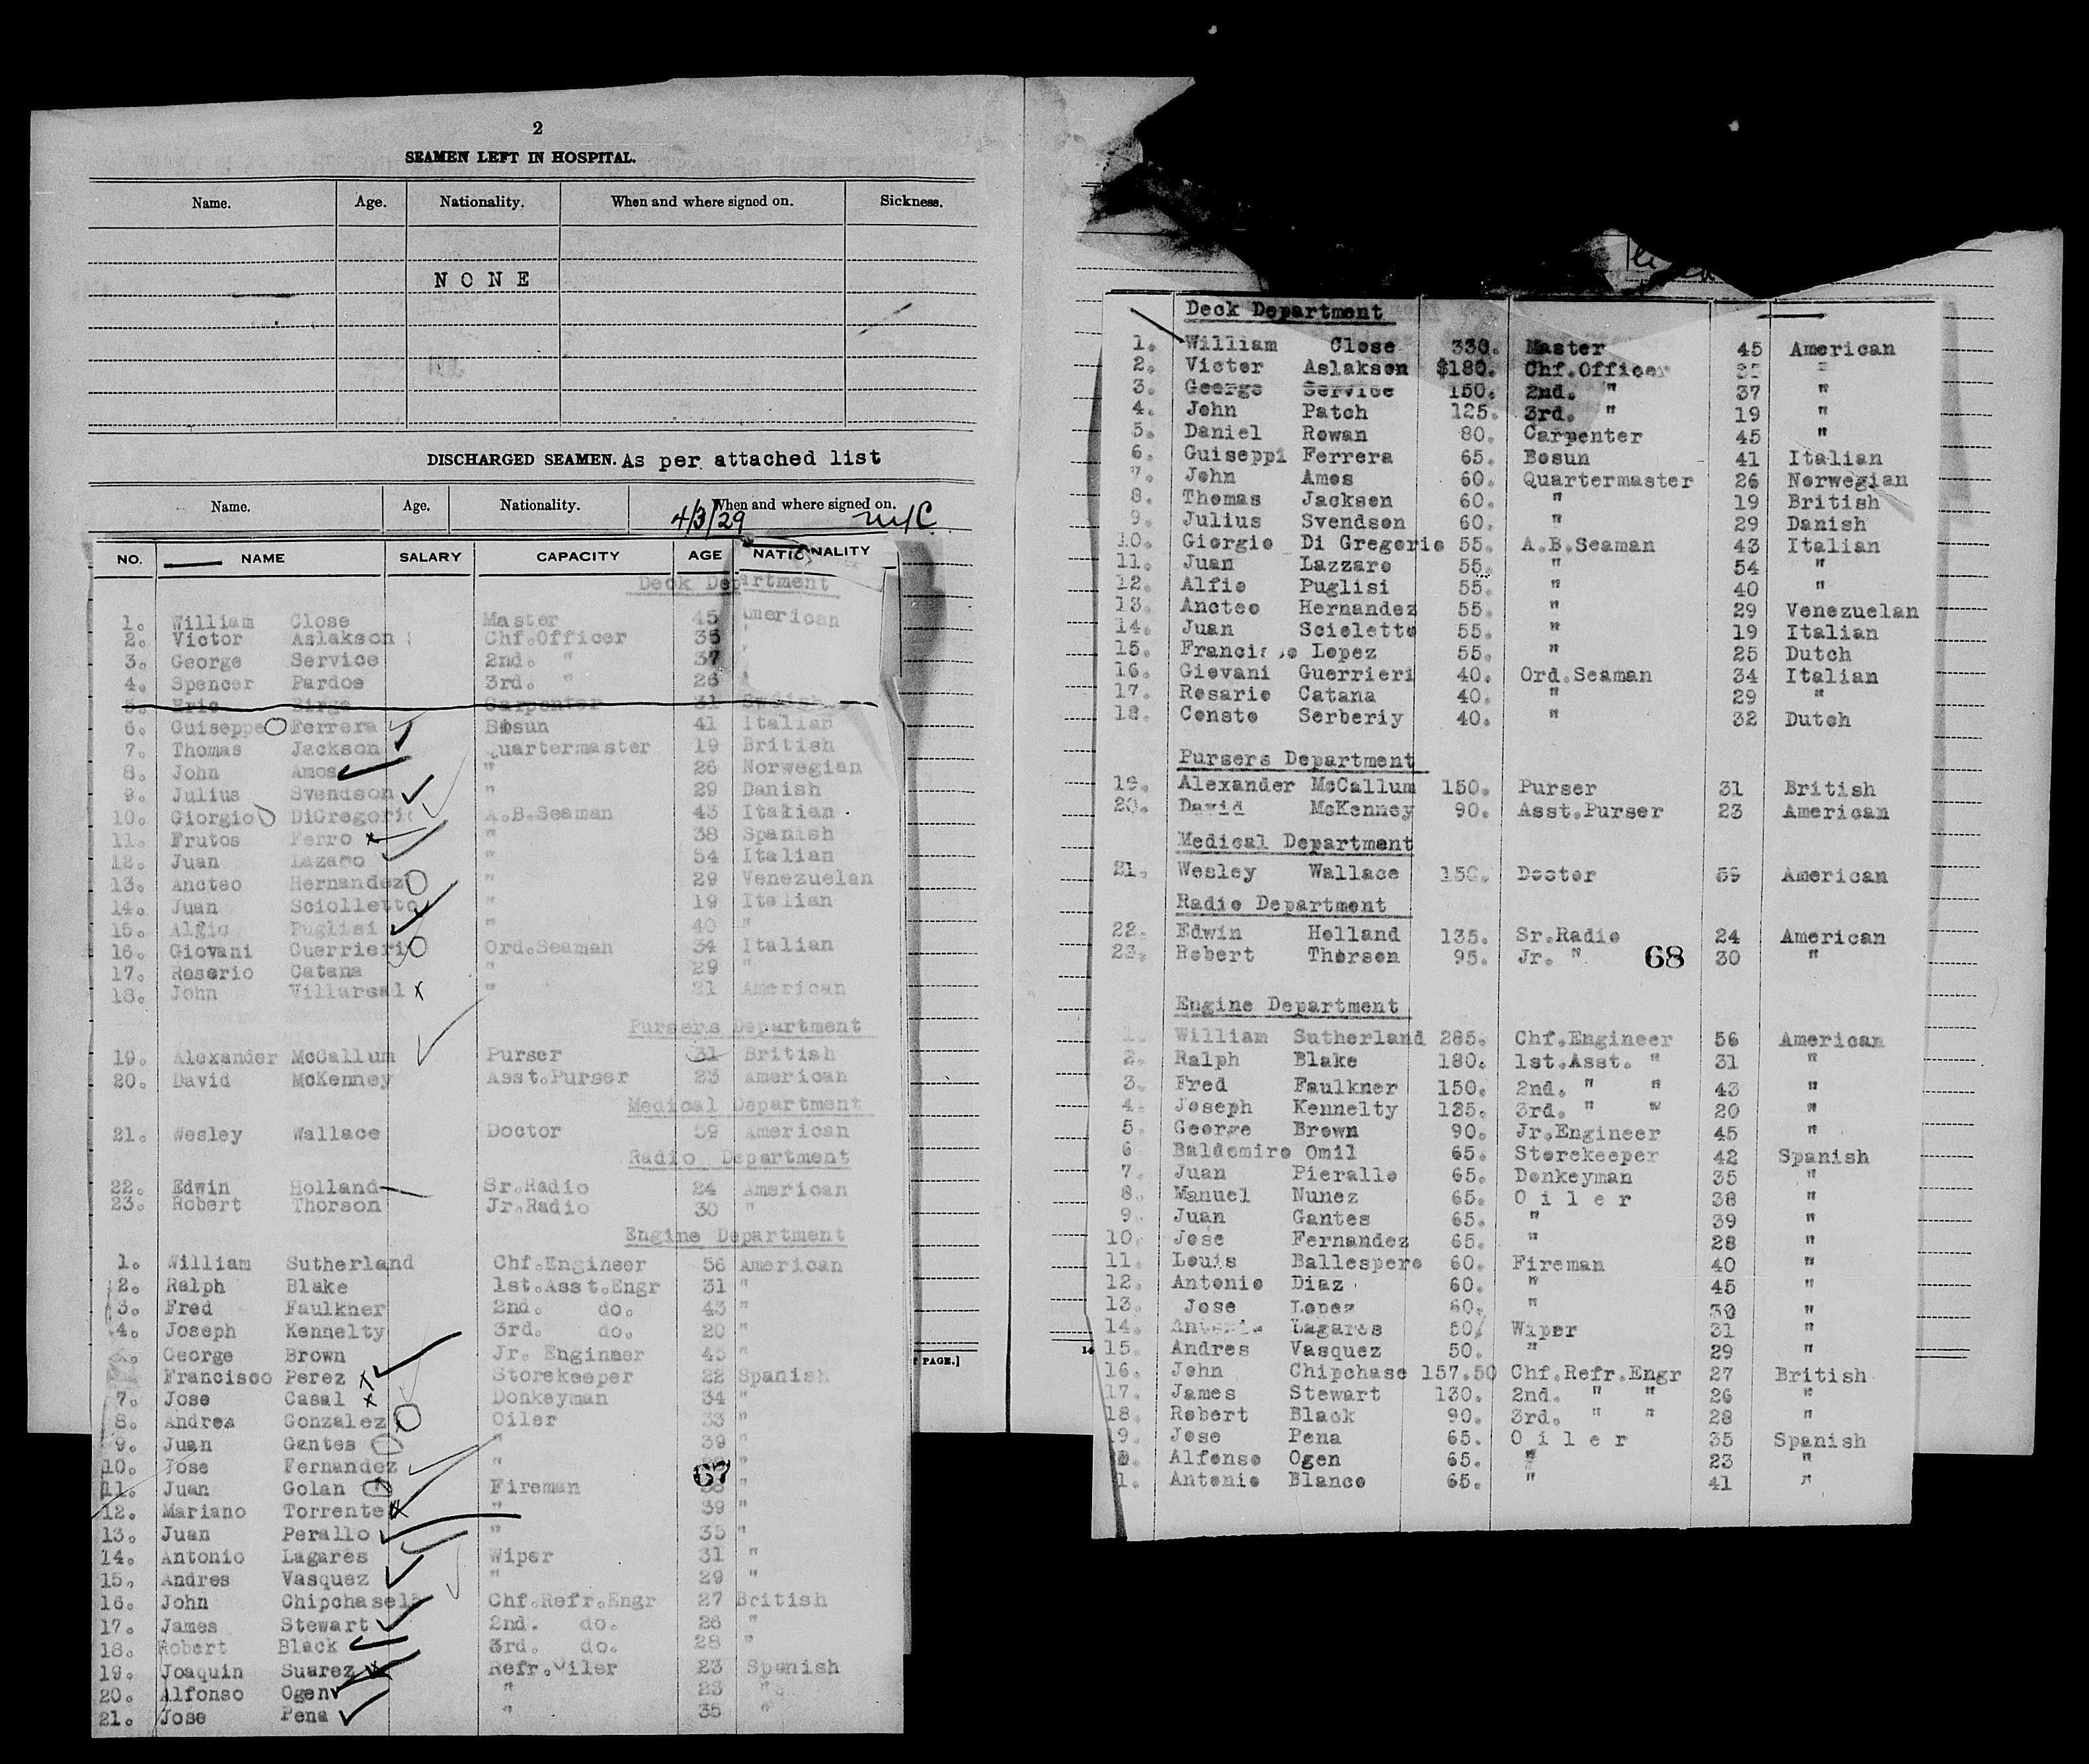 2
SEAMEN LEFT IN HOSPITAL.
Name. Age. Nationality. When and where signed on. Sickness.
NONE
DISCHARGED SEAMEN. As per attached list
Name. Age. Nationality. When and where signed on.
4/3/29 NYC
NO. NAME SALARY CAPACITY AGE NATIONALITY
Deck Department
1. William Close Master 45 American
2. Victor Aslakson Chf.Officer 35 "
3. George Service 2nd. " 37 "
4. Spencer Pardoe 3rd. " 26
5. Eric Birge Carpenter 31 Swedish
6. Guiseppe Ferrera Bosun 41 Italian
7. Thomas Jackson Quartermaster 19 British
8. John Amos " 26 Norwegian
9. Julius Svendson " 29 Danish
10. Giorgio DiGregorio A.B.Seaman 43 Italian
11. Frutos Ferro " 38 Spanish
12. Juan Lazaro " 54 Italian
13. Ancteo Hernandez " 29 Venezuelan
14. Juan Sciolletto " 19 Italian
15. Alfio Puglisi " 40 "
16. Giovani Guerrieri Ord.Seaman 34 Italian
17. Roserio Catana " 29 "
18. John Villareal " 21 American
Pursers Department
19. Alexander McCallum Purser 31 British
20. David McKenney Asst.Purser 23 American
Medical Department
21. Wesley Wallace Doctor 59 American
Radio Department
22. Edwin Holland Sr.Radio 24 American
23. Robert Thorson Jr.Radio 30 "
Engine Department
1. William Sutherland Chf.Engineer 56 American
2. Ralph Blake 1st.Asst.Engr 31 "
3. Fred Faulkner 2nd. do. 43 "
4. Joseph Kennelty 3rd. do. 20 "
George Brown Jr. Enginner 45 "
Francisco Perez Storekeeper 22 Spanish
7. Jose Casal Donkeyman 34 "
8. Andres Gonzalez Oiler 33 "
9. Juan Gantes " 39 "
10. Jose Fernandez " "
67
11. Juan Golan Fireman 38 "
12. Mariano Torrente " 39 "
13. Juan Perallo " 35 "
14. Antonio Lagares Wiper 31 "
15. Andres Vasquez " 29 "
16. John Chipchase Chf.Refr.Engr 27 British
17. James Stewart 2nd. do. 26 "
18. Robert Black 3rd. do. 28 "
19. Joaquin Suarez Refr.Oiler 23 Spanish
20. Alfonso Ogen " 23 "
21. Jose Pena " 35 "
T PAGE.]
Deck Department
1. William Close 330. Master 45 American
2. Victor Aslakson $180. Chf.Officer 35 "
3. George Service 150. 2nd. " 37 "
4. John Patch 125. 3rd. " 19 "
5. Daniel Rowan 80. Carpenter 45 "
6. Guiseppi Ferrera 65. Bosun 41 Italian
7. John Amos 60. Quartermaster 26 Norwegian
8. Thomas Jackson 60. " 19 British
9. Julius Svendson 60. " 29 Danish
10. Giorgio Di Gregorio 55. A.B.Seaman 43 Italian
11. Juan Lazzaro 55. " 54 "
12. Alfio Puglisi 55. " 40 "
13. Ancteo Hernandez 55. " 29 Venezuelan
14. Juan Scioletto 55. " 19 Italian
15. Francisco Lopez 55. " 25 Dutch
16. Giovani Guerrieri 40. Ord.Seaman 34 Italian
17. Rosario Catana 40. " 29 "
18. Consto Serberiy 40. " 32 Dutch
Pursers Department
19. Alexander McCallum 150. Purser 31 British
20. David McKenney 90. Asst.Purser 23 American
Medical Department
21. Wesley Wallace 150. Doctor 59 American
Radio Department
22. Edwin Holland 135. Sr.Radio 24 American
23. Robert Thorson 95. Jr. " 68 30 "
Engine Department
1. William Sutherland 285. Chf.Engineer 56 American
2. Ralph Blake 180. 1st.Asst. " 31 "
3. Fred Faulkner 150. 2nd. " " 43 "
4. Joseph Kennelty 125. 3rd. " " 20 "
5. George Brown 90. Jr.Engineer 45 "
6 Baldomiro Omil 65. Storekeeper 42 Spanish
7. Juan Pierallo 65. Donkeyman 35 "
8. Manuel Nunez 65. Oiler 38 "
9. Juan Gantes 65. " 39 "
10. Jose Fernandez 65. " 28 "
11. Louis Ballespero 60. Fireman 40 "
12. Antonio Diaz 60. " 45 "
13. Jose Lopez 60. " 30 "
14. Antonio Lagares 50. Wiper 31 "
15. Andres Vasquez 50. " 29 "
16. John Chipchase 157.50 Chf.Refr.Engr 27 British
17. James Stewart 130. 2nd. " " 26 "
18. Robert Black 90. 3rd. " " 28 "
19. Jose Pena 65. Oiler 35 Spanish
Alfonso Ogen 65. " 23 "
1. Antonio Blanco 65. " 41 "